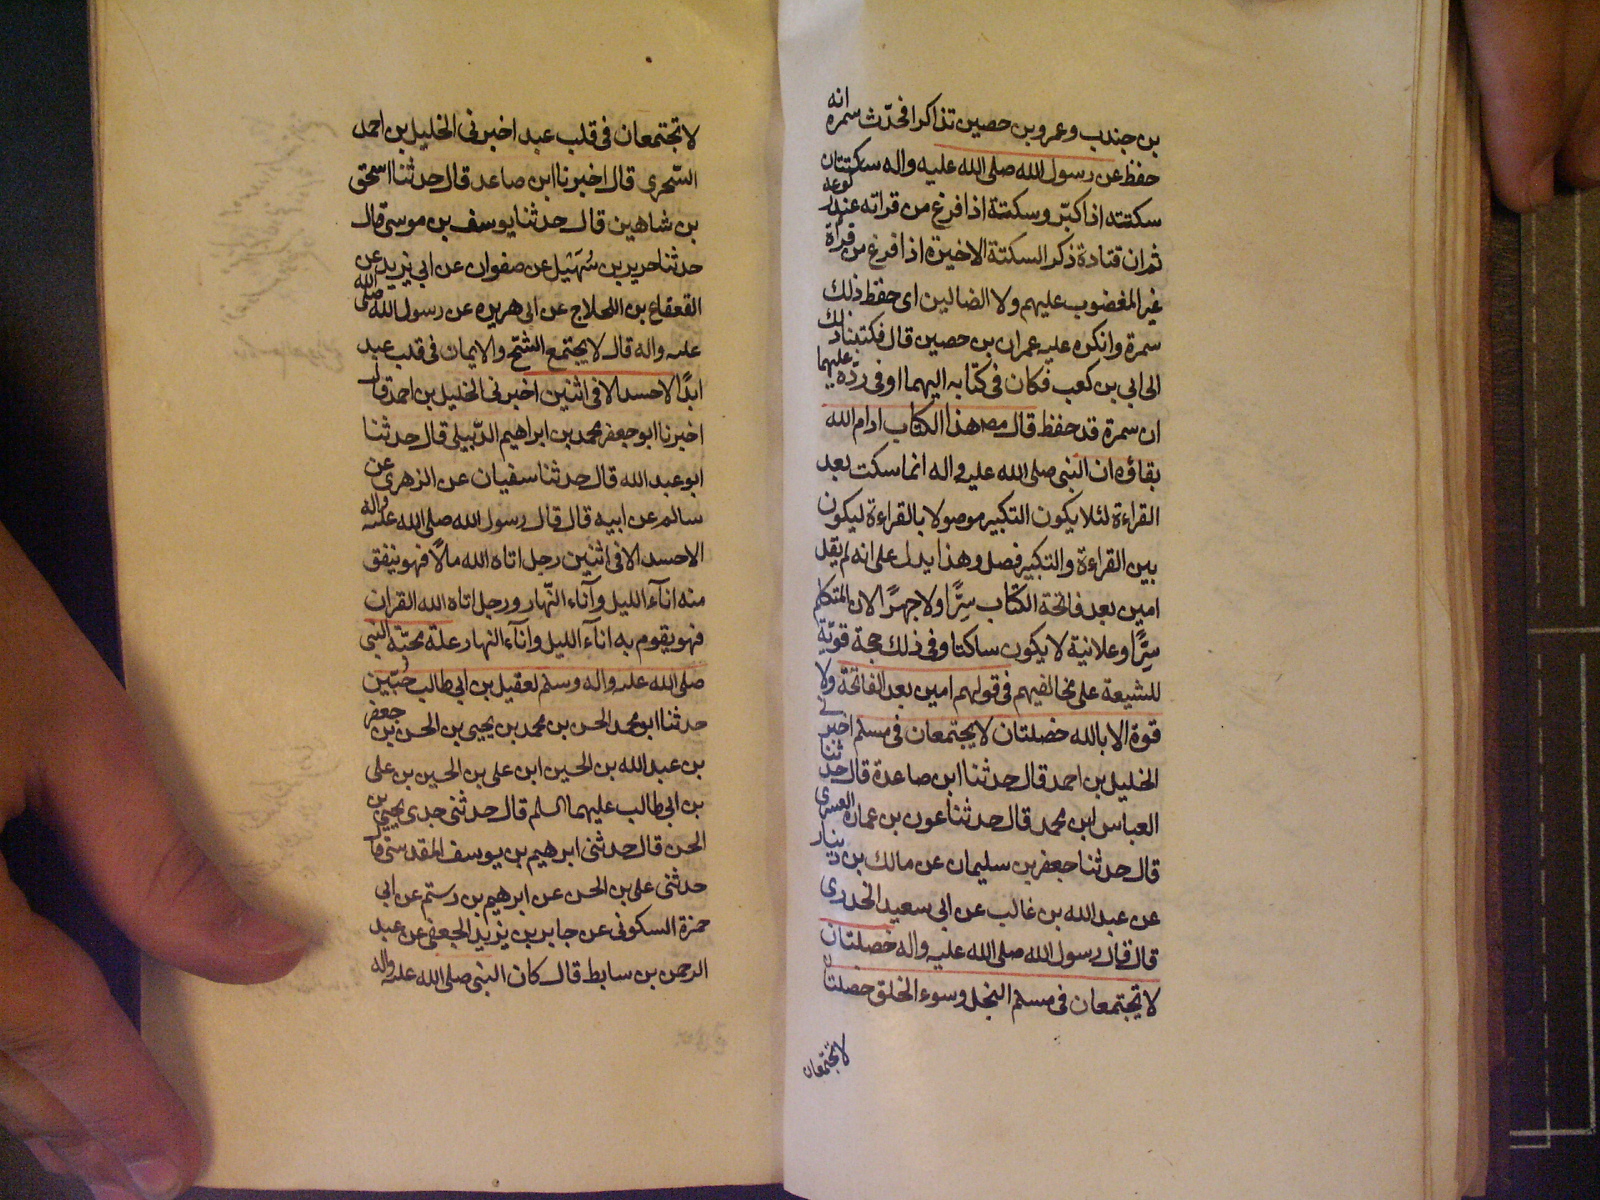 بن جندب وعمرو بن حصين تذاكرا فحدّث سمرة انه
حفظ عن رسول الله صلى الله عليه واله سكتتان
سكتته اذا كبّر وسكتة اذا افرغ من قراته عند ركوعه
ثم ان قتادة ذكر السكتة الاخيرة اذا فرغ من قراة
غير المغضوب عليهم ولا الضالين اى حفظ ذلك
سمرة وانكره عليه عمران بن حصين قال فكتبنا ذلك
الى ابي بن كعب فكان فى كتابه اليهما او فى ردّه عليهما
ان سمرة قد حفظ قال مصر هذا الكتاب ادام الله
بقاؤه ان النبى صلى الله عليه واله انما سكت بعد
القراءة لئلا يكون التكبير موصولا بالقراءة ليكون
بين القراءة والتكبير فصل وهذا يدل على انه لم يقل
امين بعد فاتحة الكتاب سِرًّا ولا جهرًا لان المتكلم
سِرًّا وعلانية لا يكون ساكتا وفى ذلك حجة قويّة
للشيعة على مخالفيهم فى قولهم امين بعد الفاتحة ولا
قوة الا بالله خصلتان لا يجتمعان فى مسلم اخبرنى
الخليل بن احمد قال حدثنا ابن صاعدة قال حدثنا
العباس ابن محمد قال حدثنا عون بن عمارة العبسرى
قال حدثنا جعفر بن سليمان عن مالك بن دينار
عن عبد الله بن غالب عن ابى سعيد الخدرى
قال قال رسول الله صلى الله عليه واله خصلتان
لا يجتمعان فى مسلم البخل وسوء الخلق خصلتان
لا تجتمعان
لا تجتمعان فى قلب عبد اخبرنى الخليل بن احمد
السّجرى قال اخبرنا ابن صاعد قال حدثنا اسحق
بن شاهين قال حدثنا يوسف بن موسى قال
حدثنا حرير بن سُهَيل عن صفوان عن ابى يزيد عن
القعقاع بن اللحلاج عن ابى هريره عن رسول الله صلى الله
عليه واله قال لا يجتمع الشحّ والايمان فى قلب عبد
ابدًا لا حسد الا فى اثنين اخبرنى الخليل بن احمد قال
اخبرنا ابو جعفر محمد بن ابراهيم الدّبيلى قال حدثنا
ابو عبد الله قال حدثنا سفيان عن الزهرى عن
سالم عن ابيه قال قال رسول الله صلى الله عليه واله
الاحسد الا فى اثنين رجل اتاه الله مالًا فهو ينفق
منه اناء الليل وآناء النّهار ورجل اتاه الله القران
فهو يقوم به اناء الليل واناء النهار علة محبّة النبى
صلى الله عليه واله وسلم لعقيل بن ابى طالب حُبّين
حدثنا ابو محمد الحسن بن محمد بن يحيى بن الحسن بن جعفر
بن عبد الله بن الحسين ابن على بن الحسين بن على
بن ابى طالب عليهما السلم قال حدثنى جدى يحيى بن
الحسن قال حدثنى ابرهيم بن يوسف المقدسى قال
حدثنى على بن الحسن عن ابرهيم بن رستم عن ابى
حمزة السكونى عن جابر بن يزيد الجعفى عن عبد
الرحمن بن سابط قال كان النبى صلى الله عليه واله